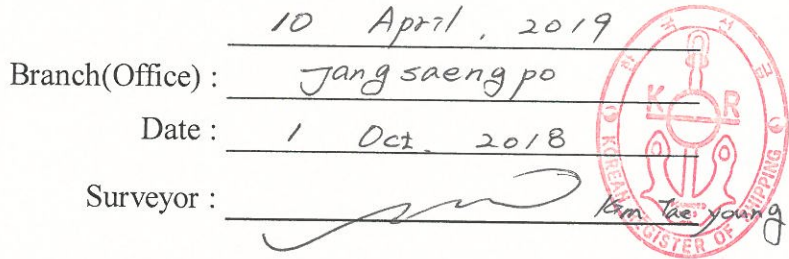 10 April, 2019
Branch(Office) : Jang saeng po
Date : 1 Oct. 2018
Surveyor : Kim Tae young
한국선급
KR
KOREAN REGISTER OF SHIPPING